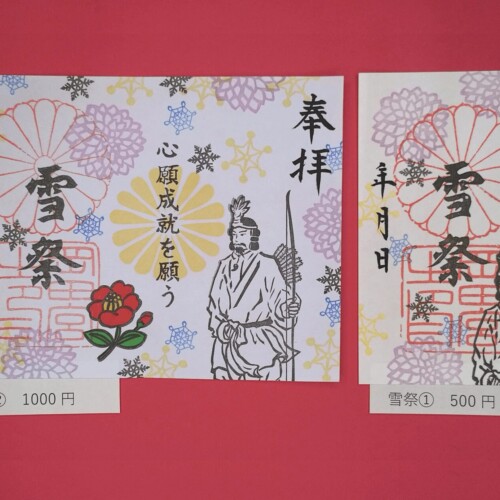 奉拝
心願成就を願う
雪祭
② 1000円
年月日
雪祭
雪祭① 500円